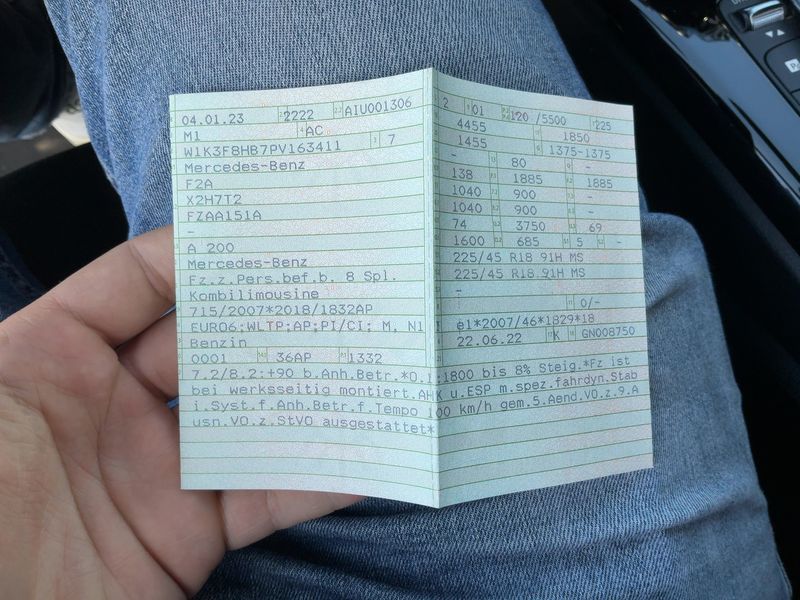 04.01.23 2222 AIU001306
M1 AC
W1K3F8HB7PV163411 7
Mercedes-Benz
F2A
X2H7T2
FZAA151A
-
A 200
Mercedes-Benz
Fz.z.Pers.bef.b. 8 Spl.
Kombilimousine
715/2007*2018/1832AP
EURO6;WLTP;AP;PI/CI; M, N1
Benzin
0001 36AP 1332
7.2/8.2:+90 b.Anh.Betr.*O.1:1800 bis 8% Steig.*Fz ist
bei werksseitig montiert.AHK u.ESP m.spez.fahrdyn.Stab
i.Syst.f.Anh.Betr.f.Tempo 100 km/h gem.5.Aend.VO.z.9.A
usn.VO.z.StVO ausgestattet*
2 01 120 /5500 225
4455 1850
1455 1375-1375
- 80 -
138 1885 1885
1040 900 -
1040 900 -
74 3750 69
1600 685 5 -
225/45 R18 91H MS
225/45 R18 91H MS
-
- 0/-
e1*2007/46*1829*18
22.06.22 K GN008750
P